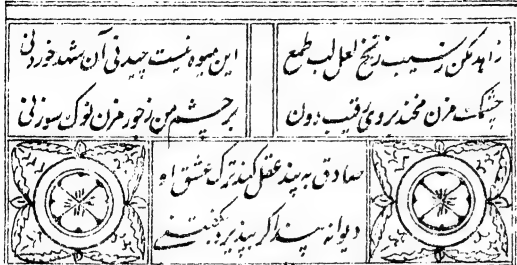 زاهد مکن ز سیب زنخ لعل لب طمع
این میوه نیست چیدنی آن شهد خوردنی
چشمک مزن مخند بروی رقیب دون
بر چشم من ز جور مزن نوک سوزنی
صادق به پند عقل کند ترک عشق او
دیوانه پند اگر بپذیرد